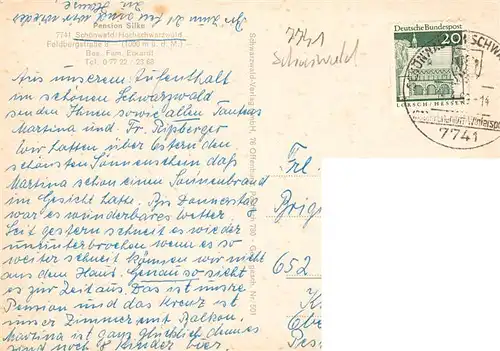 Pension Silke
7741 Schönwald/Hochschwarzwald
Feldbergstraße 8 – (1000 m ü. d. M.)
Bes. Fam. Eckardt
Tel. 0 77 22 - 23 68
Aus unserem Aufenthalt
im schönen Schwarzwald
senden Ihnen sowie allen Tanten
Martina und Fr. Ripberger
Wir hatten über Ostern den
schönsten Sonnenschein daß
Martina schon einen Sonnenbrand
im Gesicht hatte. Bis Donnerstag
war es wunderbares Wetter.
Seit gestern schneit es wieder
ununterbrochen wenn es so
weiter schneit können wir nicht
aus dem Haus. Genau so sieht
es zur Zeit aus Das ist unsre
Pension und das Kreuz ist
unser Zimmer mit Balkon.
Martina ist ganz glücklich denn es
sind noch 8 Kinder hier
7741
Schönwald
Deutsche Bundespost
20
LORSCH / HESSEN
7741
Frl.
Brigi
652